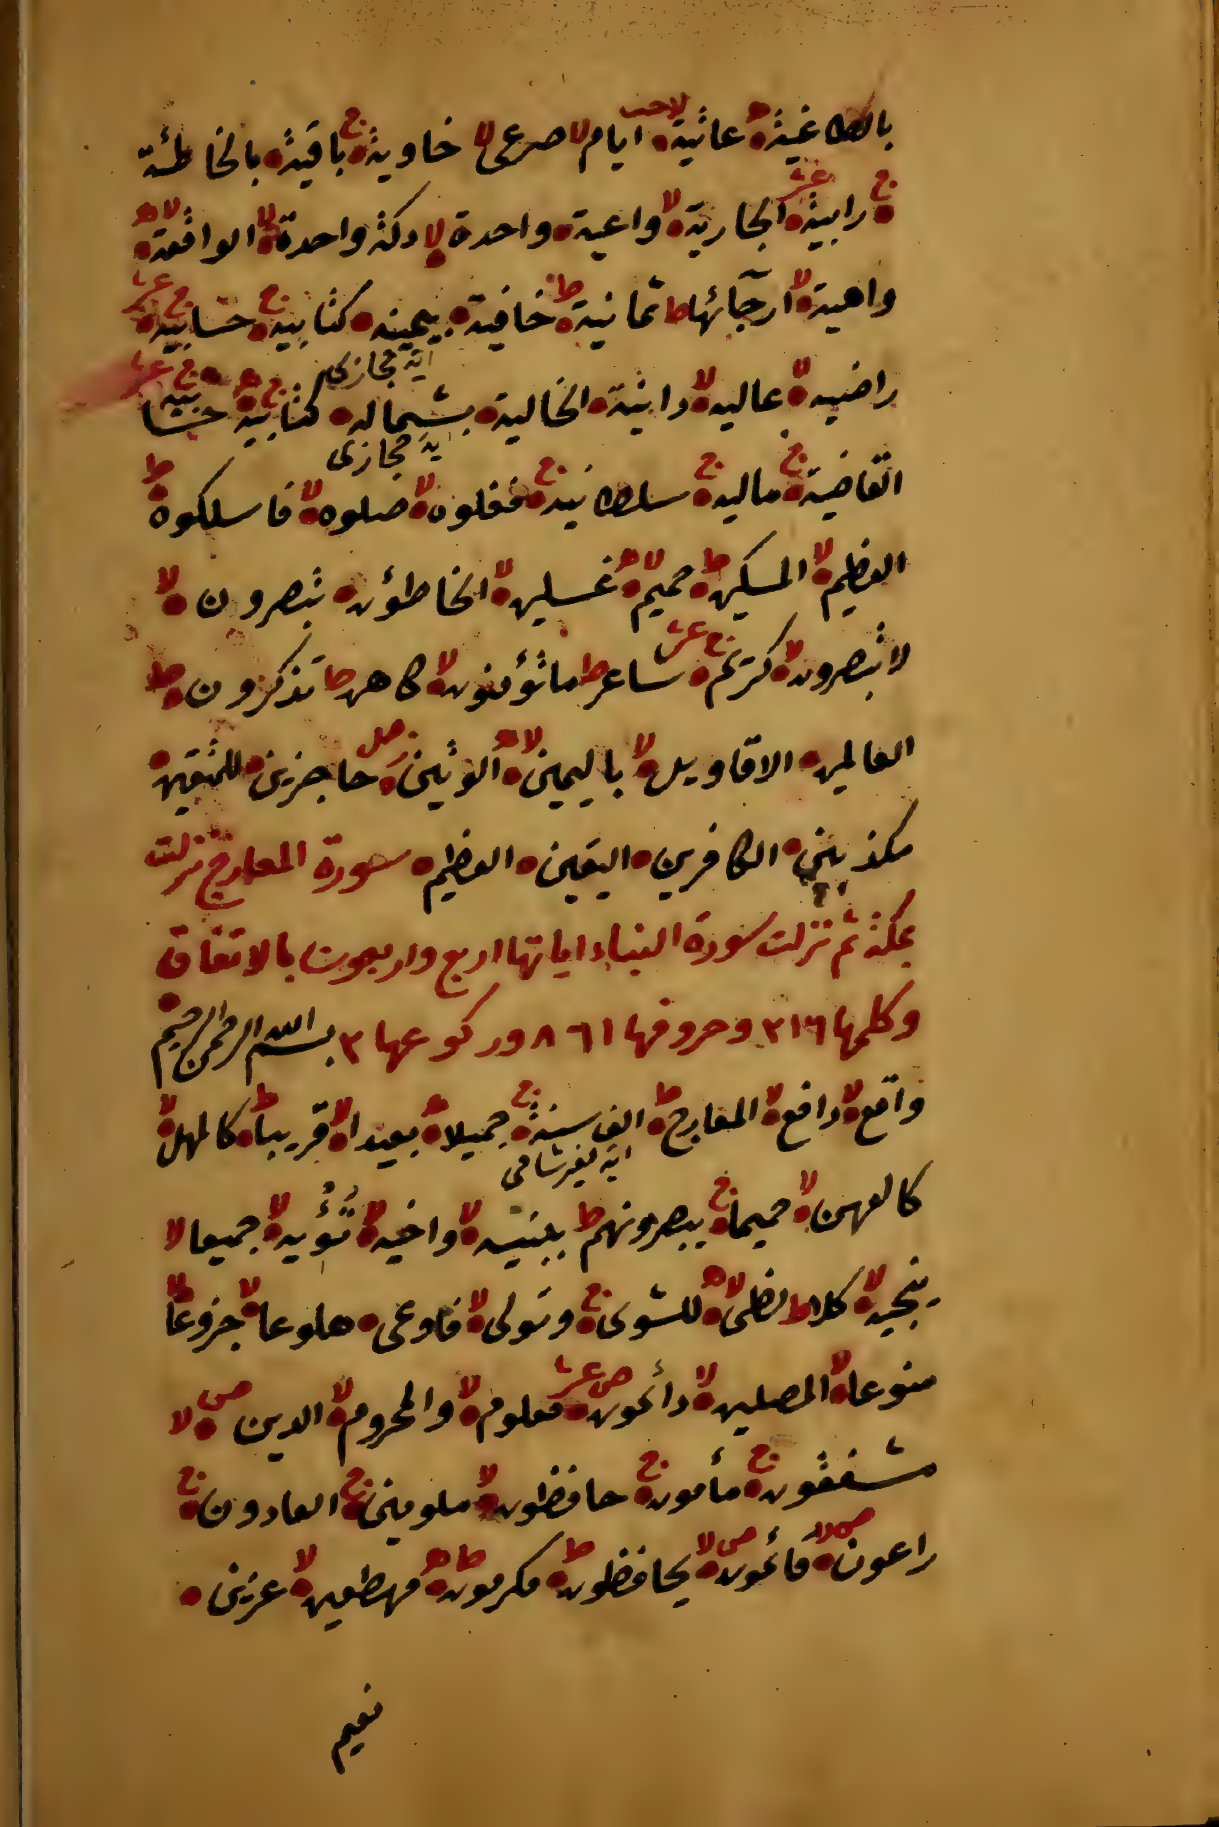 بالطاغية عاتية ايام لا صرعى لا خاوية ج باقية بالخاطئة
ج رابية الجارية لا واعية واحدة لا دكة واحدة الواقعة
واهية لا ارجآئها ط ثمانية ط خافية بيمينه كتابيه ج حسابيه ج
اية حجازى
راضيه لا عاليه لا دانية الخالية بشماله كتابيه ج حسابيه ج
ية حجازى
القاضية ج ماليه ج سلطانيه ج فغلوه لا صلوه لا فاسلكوه ط
العظيم لا المسكين ط حميم لا غسلين لا الخاطؤن تبصرون لا
لا تبصرون لا كريم ج عشر شاعر ط ما تؤمنون لا كاهن ط تذكرون ط
العالمين الاقاويل لا باليمين لا الوتين صل حاجزين للمتقين
مكذبين الكافرين اليقين العظيم سورة المعارج نزلت
بمكة ثم نزلت سورة النباء اياتها اربع واربعون بالاتفاق
وكلمها ٢١٦ وحروفها ٨٦١ وركوعها ٢ بسم الله الرحمن الرحيم
واقع لا دافع لا المعارج ط الف سنة ج جميلا بعيدا لا قريبا ط كالمهل لا
اية لغير شامى
كالعهن لا حميما ج يبصرونهم ط ببنيه لا واخيه لا تؤيه لا جميعا لا
ينجيه لا كلا ط لظى لا للشوى ج وتولى لا فاوعى هلوعا لا جزوعا لا
منوعا لا المصلين لا دائمون ص عشر معلوم لا والمحروم لا الدين ص لا
مشفقون ج مأمون ج حافظون لا ملومين ج العادون ج
راعون ص لا قائمون ص لا يحافظون ط مكرمون ط مهطعين لا عزين
نعيم